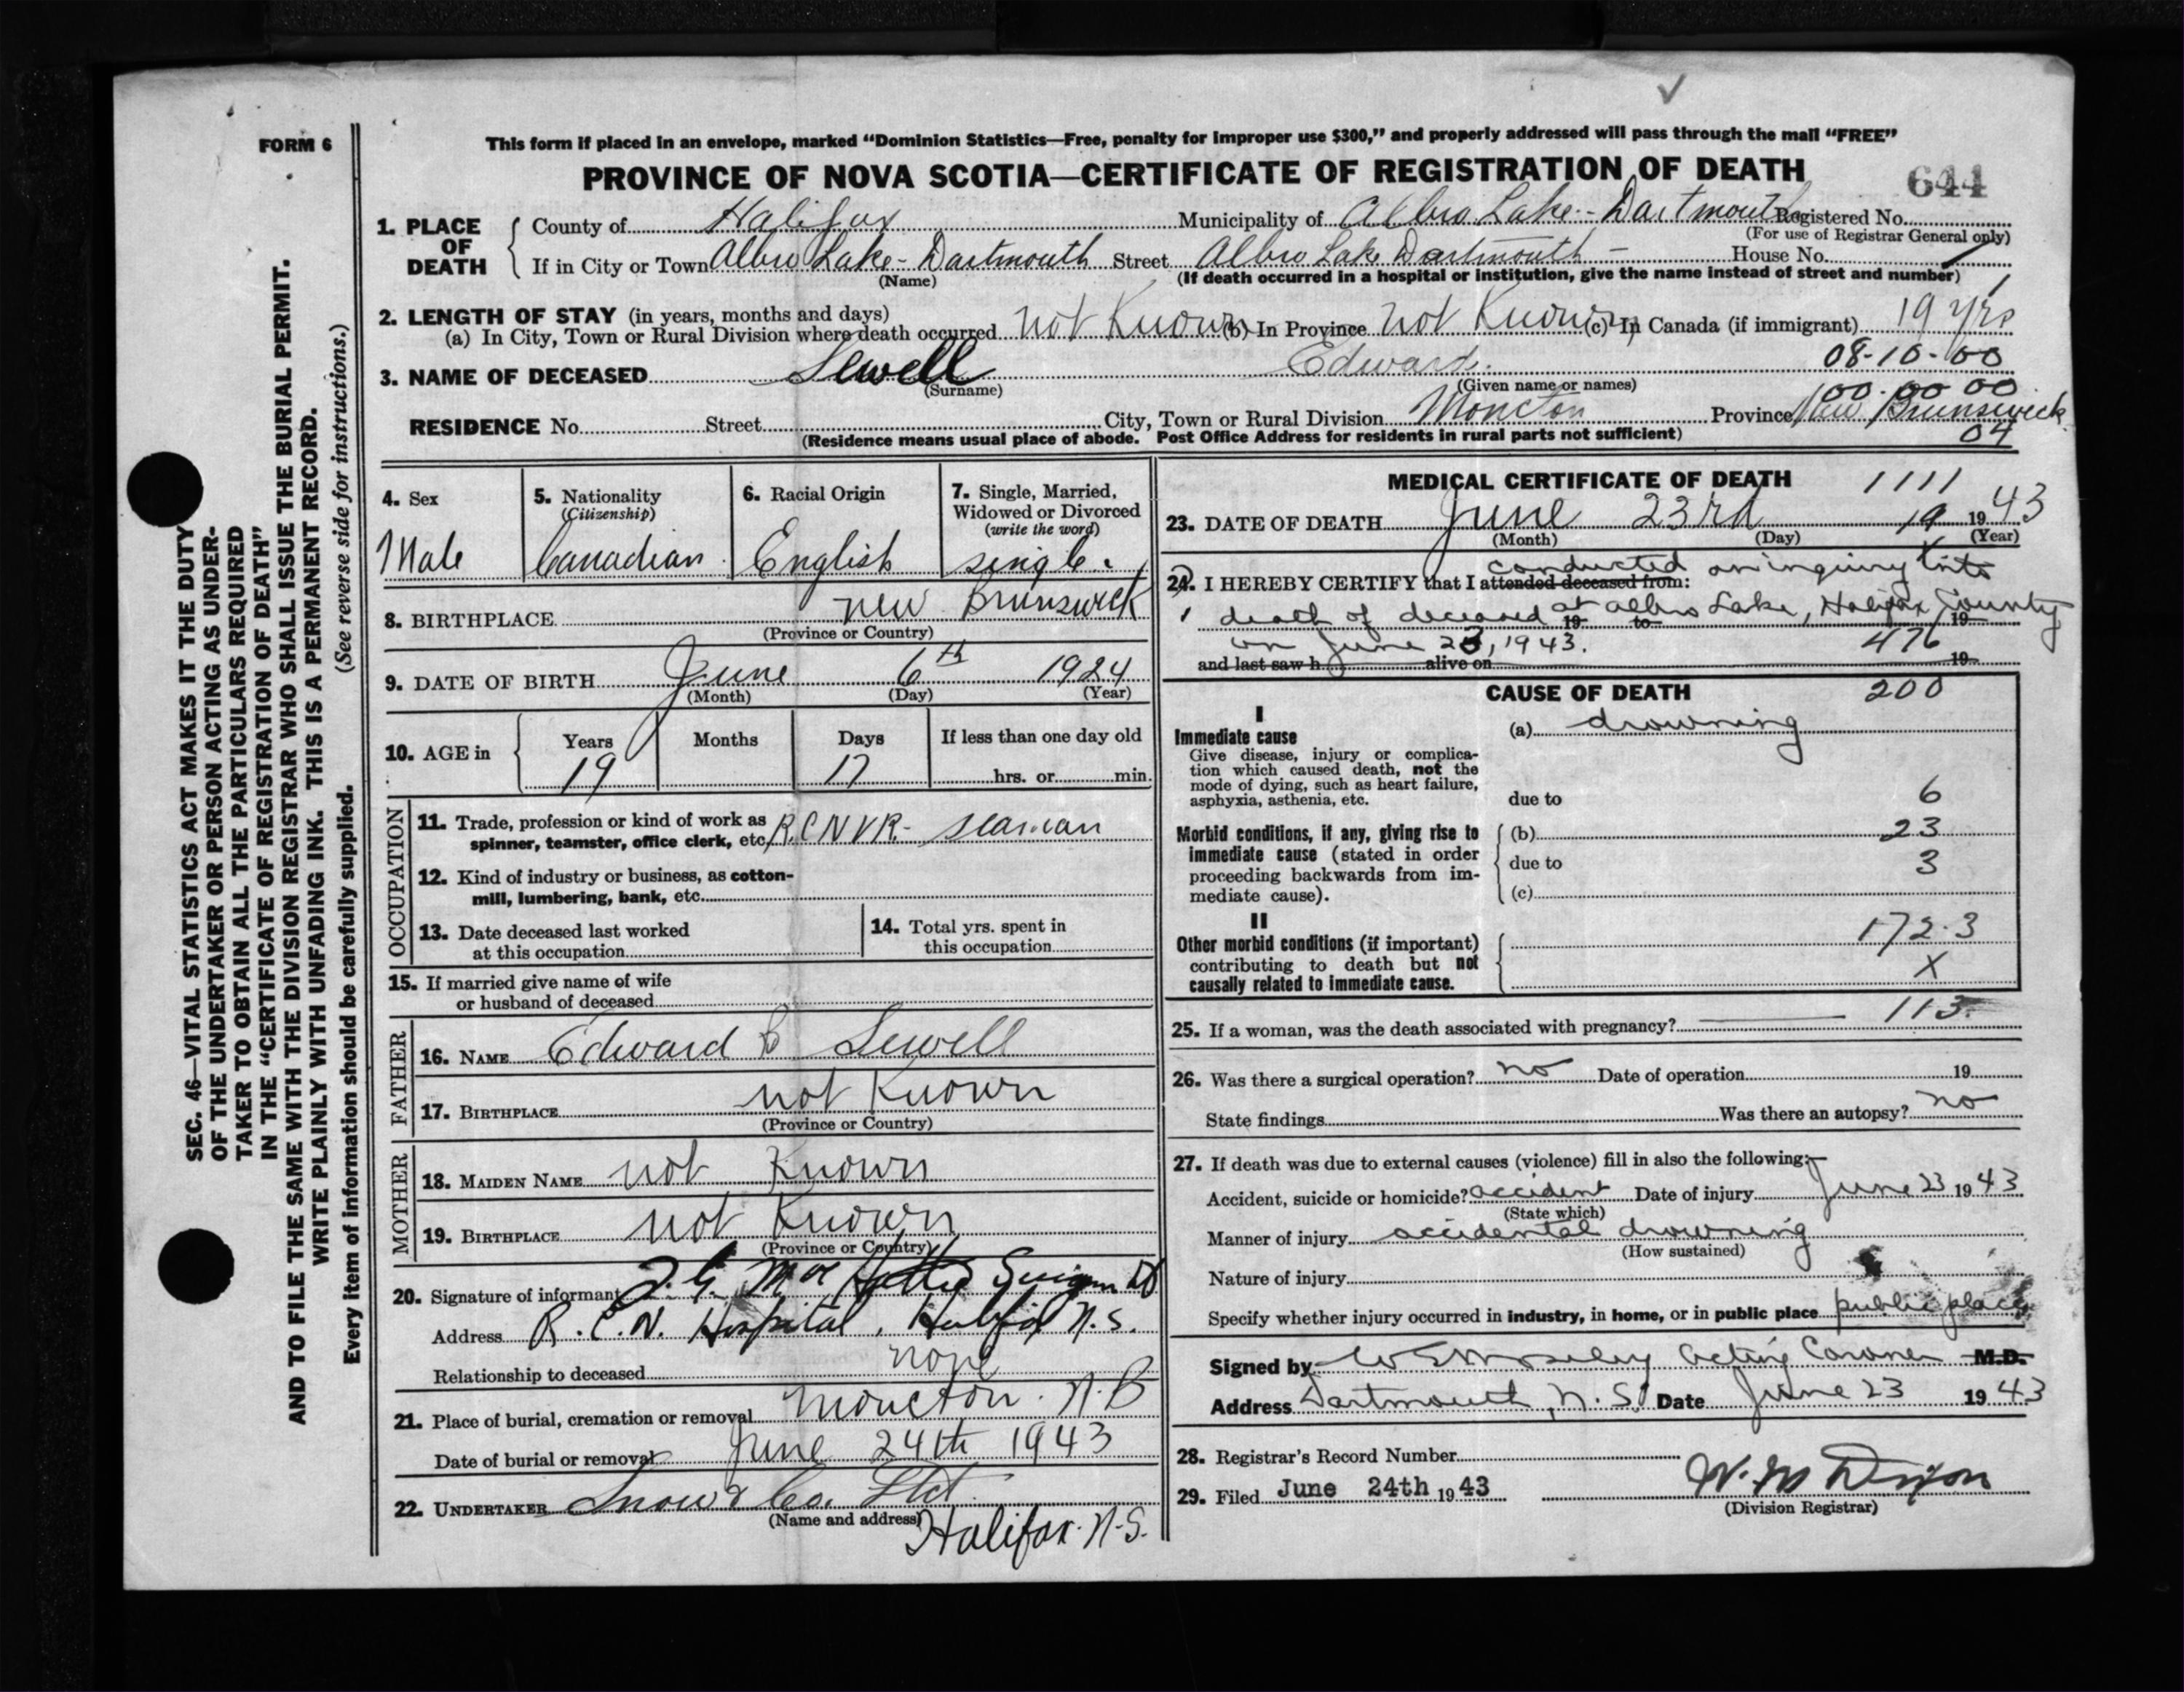 FORM 6
This form if placed in an envelope, marked “Dominion Statistics—Free, penalty for improper use $300,” and properly addressed will pass through the mail “FREE”
PROVINCE OF NOVA SCOTIA—CERTIFICATE OF REGISTRATION OF DEATH
644
1. PLACE OF DEATH
County of Halifax Municipality of Albro Lake - Dartmouth Registered No.
(For use of Registrar General only)
If in City or Town Albro Lake - Dartmouth Street Albro Lake Dartmouth - House No.
(Name) (If death occurred in a hospital or institution, give the name instead of street and number)
2. LENGTH OF STAY (in years, months and days)
(a) In City, Town or Rural Division where death occurred not Known (b) In Province not Known (c) In Canada (if immigrant) 19 yrs
08-10-00
3. NAME OF DECEASED Sewell Edward.
(Surname) (Given name or names)
00-00 00
RESIDENCE No. Street City, Town or Rural Division Moncton Province New Brunswick
(Residence means usual place of abode. Post Office Address for residents in rural parts not sufficient) 04
4. Sex
Male
5. Nationality
(Citizenship)
Canadian
6. Racial Origin
English
7. Single, Married, Widowed or Divorced
(write the word)
single.
8. BIRTHPLACE new Brunswick
(Province or Country)
9. DATE OF BIRTH June 6th 1924
(Month) (Day) (Year)
10. AGE in
Years Months Days If less than one day old
19 17 hrs. or min.
OCCUPATION
11. Trade, profession or kind of work as spinner, teamster, office clerk, etc. R.C.N.V.R - seaman
12. Kind of industry or business, as cotton-mill, lumbering, bank, etc.
13. Date deceased last worked at this occupation
14. Total yrs. spent in this occupation
15. If married give name of wife or husband of deceased
FATHER
16. NAME Edward Sewell
17. BIRTHPLACE not Known
(Province or Country)
MOTHER
18. MAIDEN NAME not Known
19. BIRTHPLACE not Known
(Province or Country)
20. Signature of informant
Address R.C.N. Hospital, Halifax N.S.
Relationship to deceased none
21. Place of burial, cremation or removal Moncton. N.B
Date of burial or removal June 24th 1943
22. UNDERTAKER Snow & Co. Ltd.
(Name and address)
Halifax. N.S.
MEDICAL CERTIFICATE OF DEATH 1111
23. DATE OF DEATH June 23rd 19 1943
(Month) (Day) (Year)
conducted an inquiry into
24. I HEREBY CERTIFY that I attended deceased from:
death of deceased at Albro Lake, Halifax County
19 to 19
on June 23, 1943. 476
and last saw h alive on 19
CAUSE OF DEATH 200
I
Immediate cause
Give disease, injury or complication which caused death, not the mode of dying, such as heart failure, asphyxia, asthenia, etc.
(a) drowning
due to 6
Morbid conditions, if any, giving rise to immediate cause (stated in order proceeding backwards from immediate cause).
(b) 23
due to 3
(c)
II
Other morbid conditions (if important) contributing to death but not causally related to immediate cause.
172.3
X
25. If a woman, was the death associated with pregnancy? 113.
26. Was there a surgical operation? no Date of operation 19
State findings Was there an autopsy? no
27. If death was due to external causes (violence) fill in also the following:
Accident, suicide or homicide? accident Date of injury June 23 1943
(State which)
Manner of injury accidental drowning
(How sustained)
Nature of injury
Specify whether injury occurred in industry, in home, or in public place public place
Signed by W E Moseley acting Coroner M.D.
Address Dartmouth, N.S. Date June 23 1943
28. Registrar's Record Number
29. Filed June 24th 1943 W. M Dixon
(Division Registrar)
SEC. 46—VITAL STATISTICS ACT MAKES IT THE DUTY
OF THE UNDERTAKER OR PERSON ACTING AS UNDER-
TAKER TO OBTAIN ALL THE PARTICULARS REQUIRED
IN THE “CERTIFICATE OF REGISTRATION OF DEATH”
AND TO FILE THE SAME WITH THE DIVISION REGISTRAR WHO SHALL ISSUE THE BURIAL PERMIT.
WRITE PLAINLY WITH UNFADING INK. THIS IS A PERMANENT RECORD.
Every item of information should be carefully supplied. (See reverse side for instructions.)